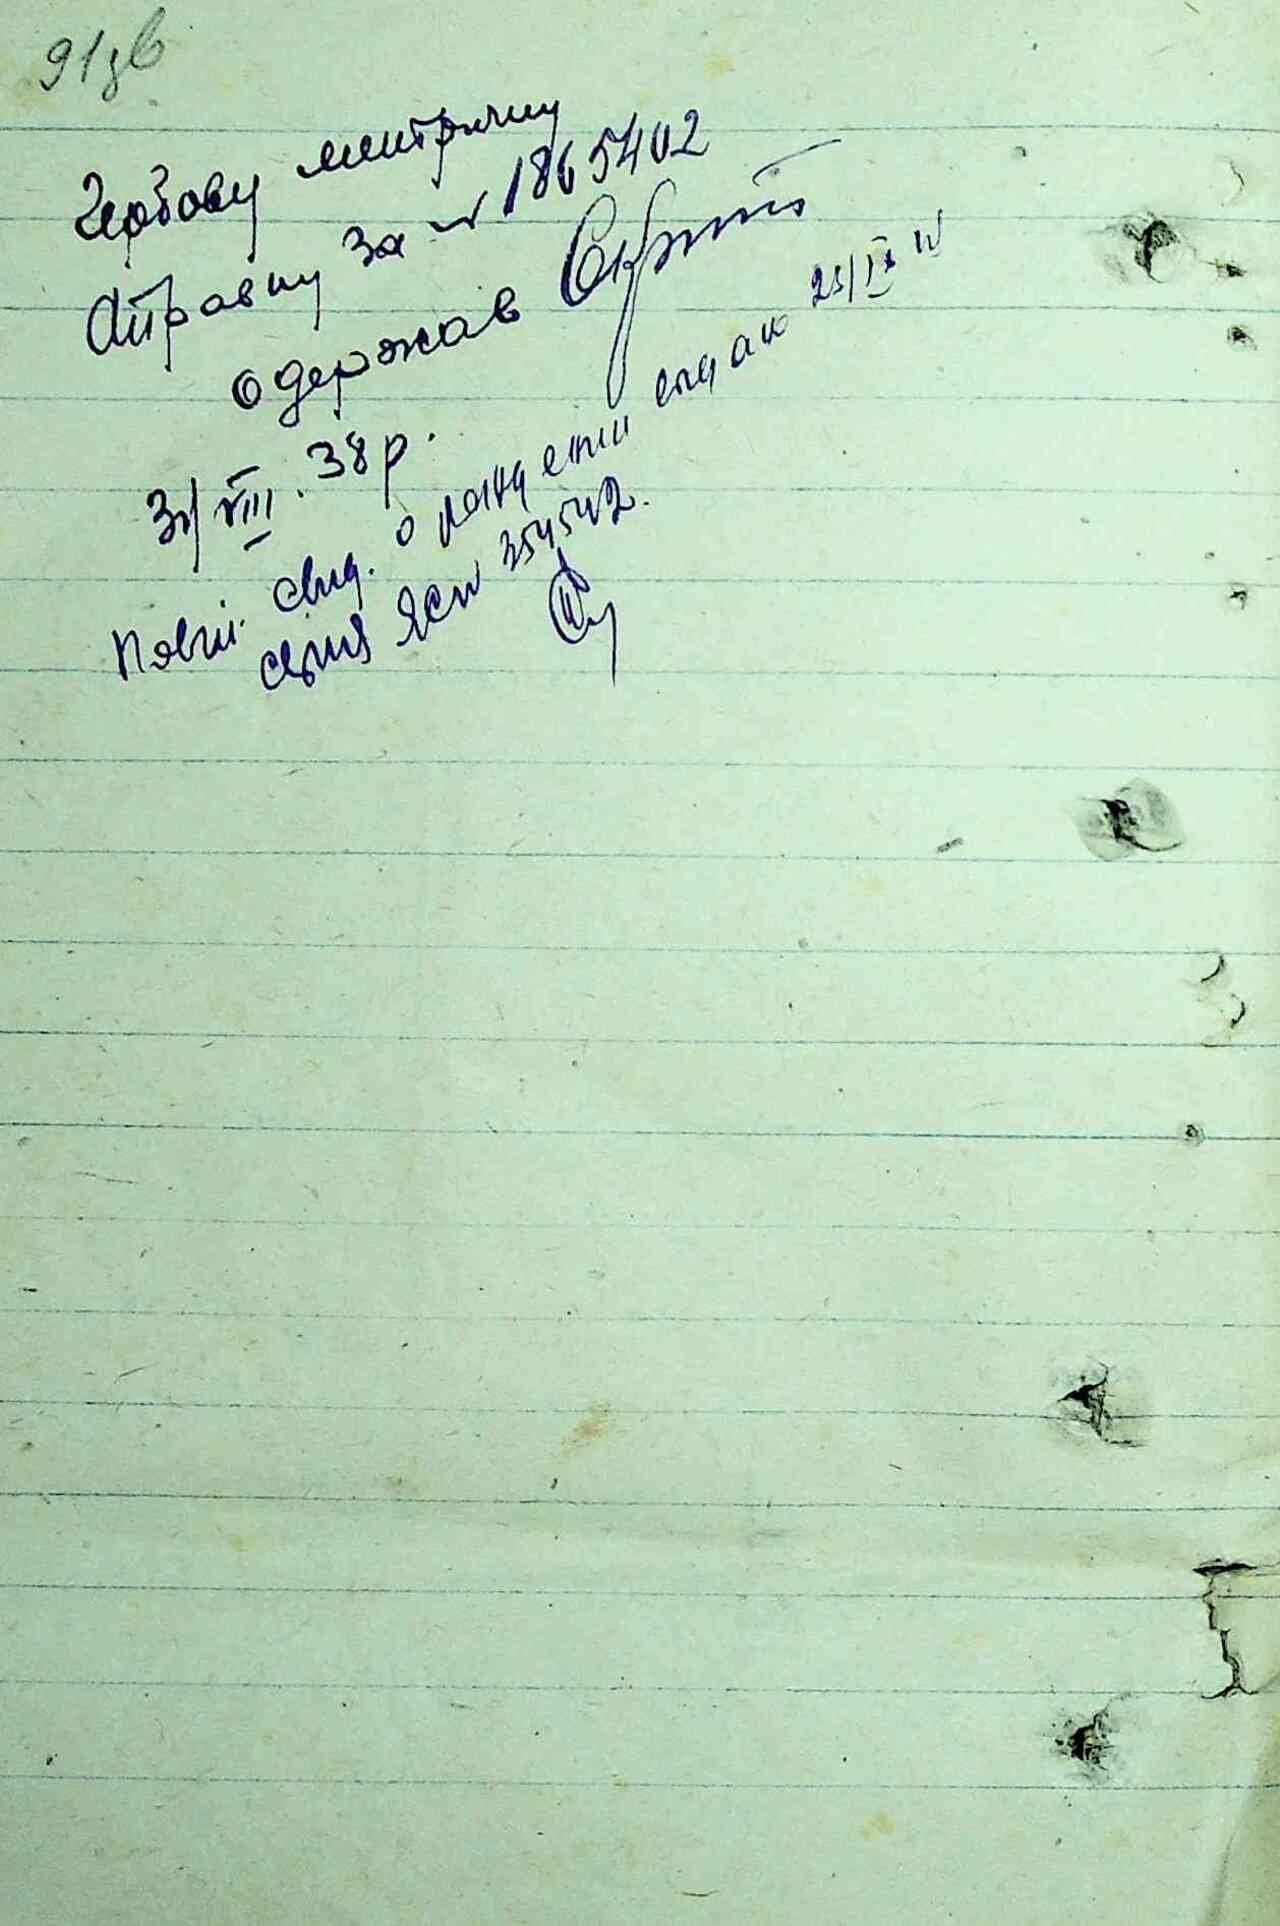 91зв
Гербову метричну
справку за № 1865402
одержав
31/VIII. 38 р.
Повтор. свид. о рождении выдано 23/IX
серия ЯС № 354542.